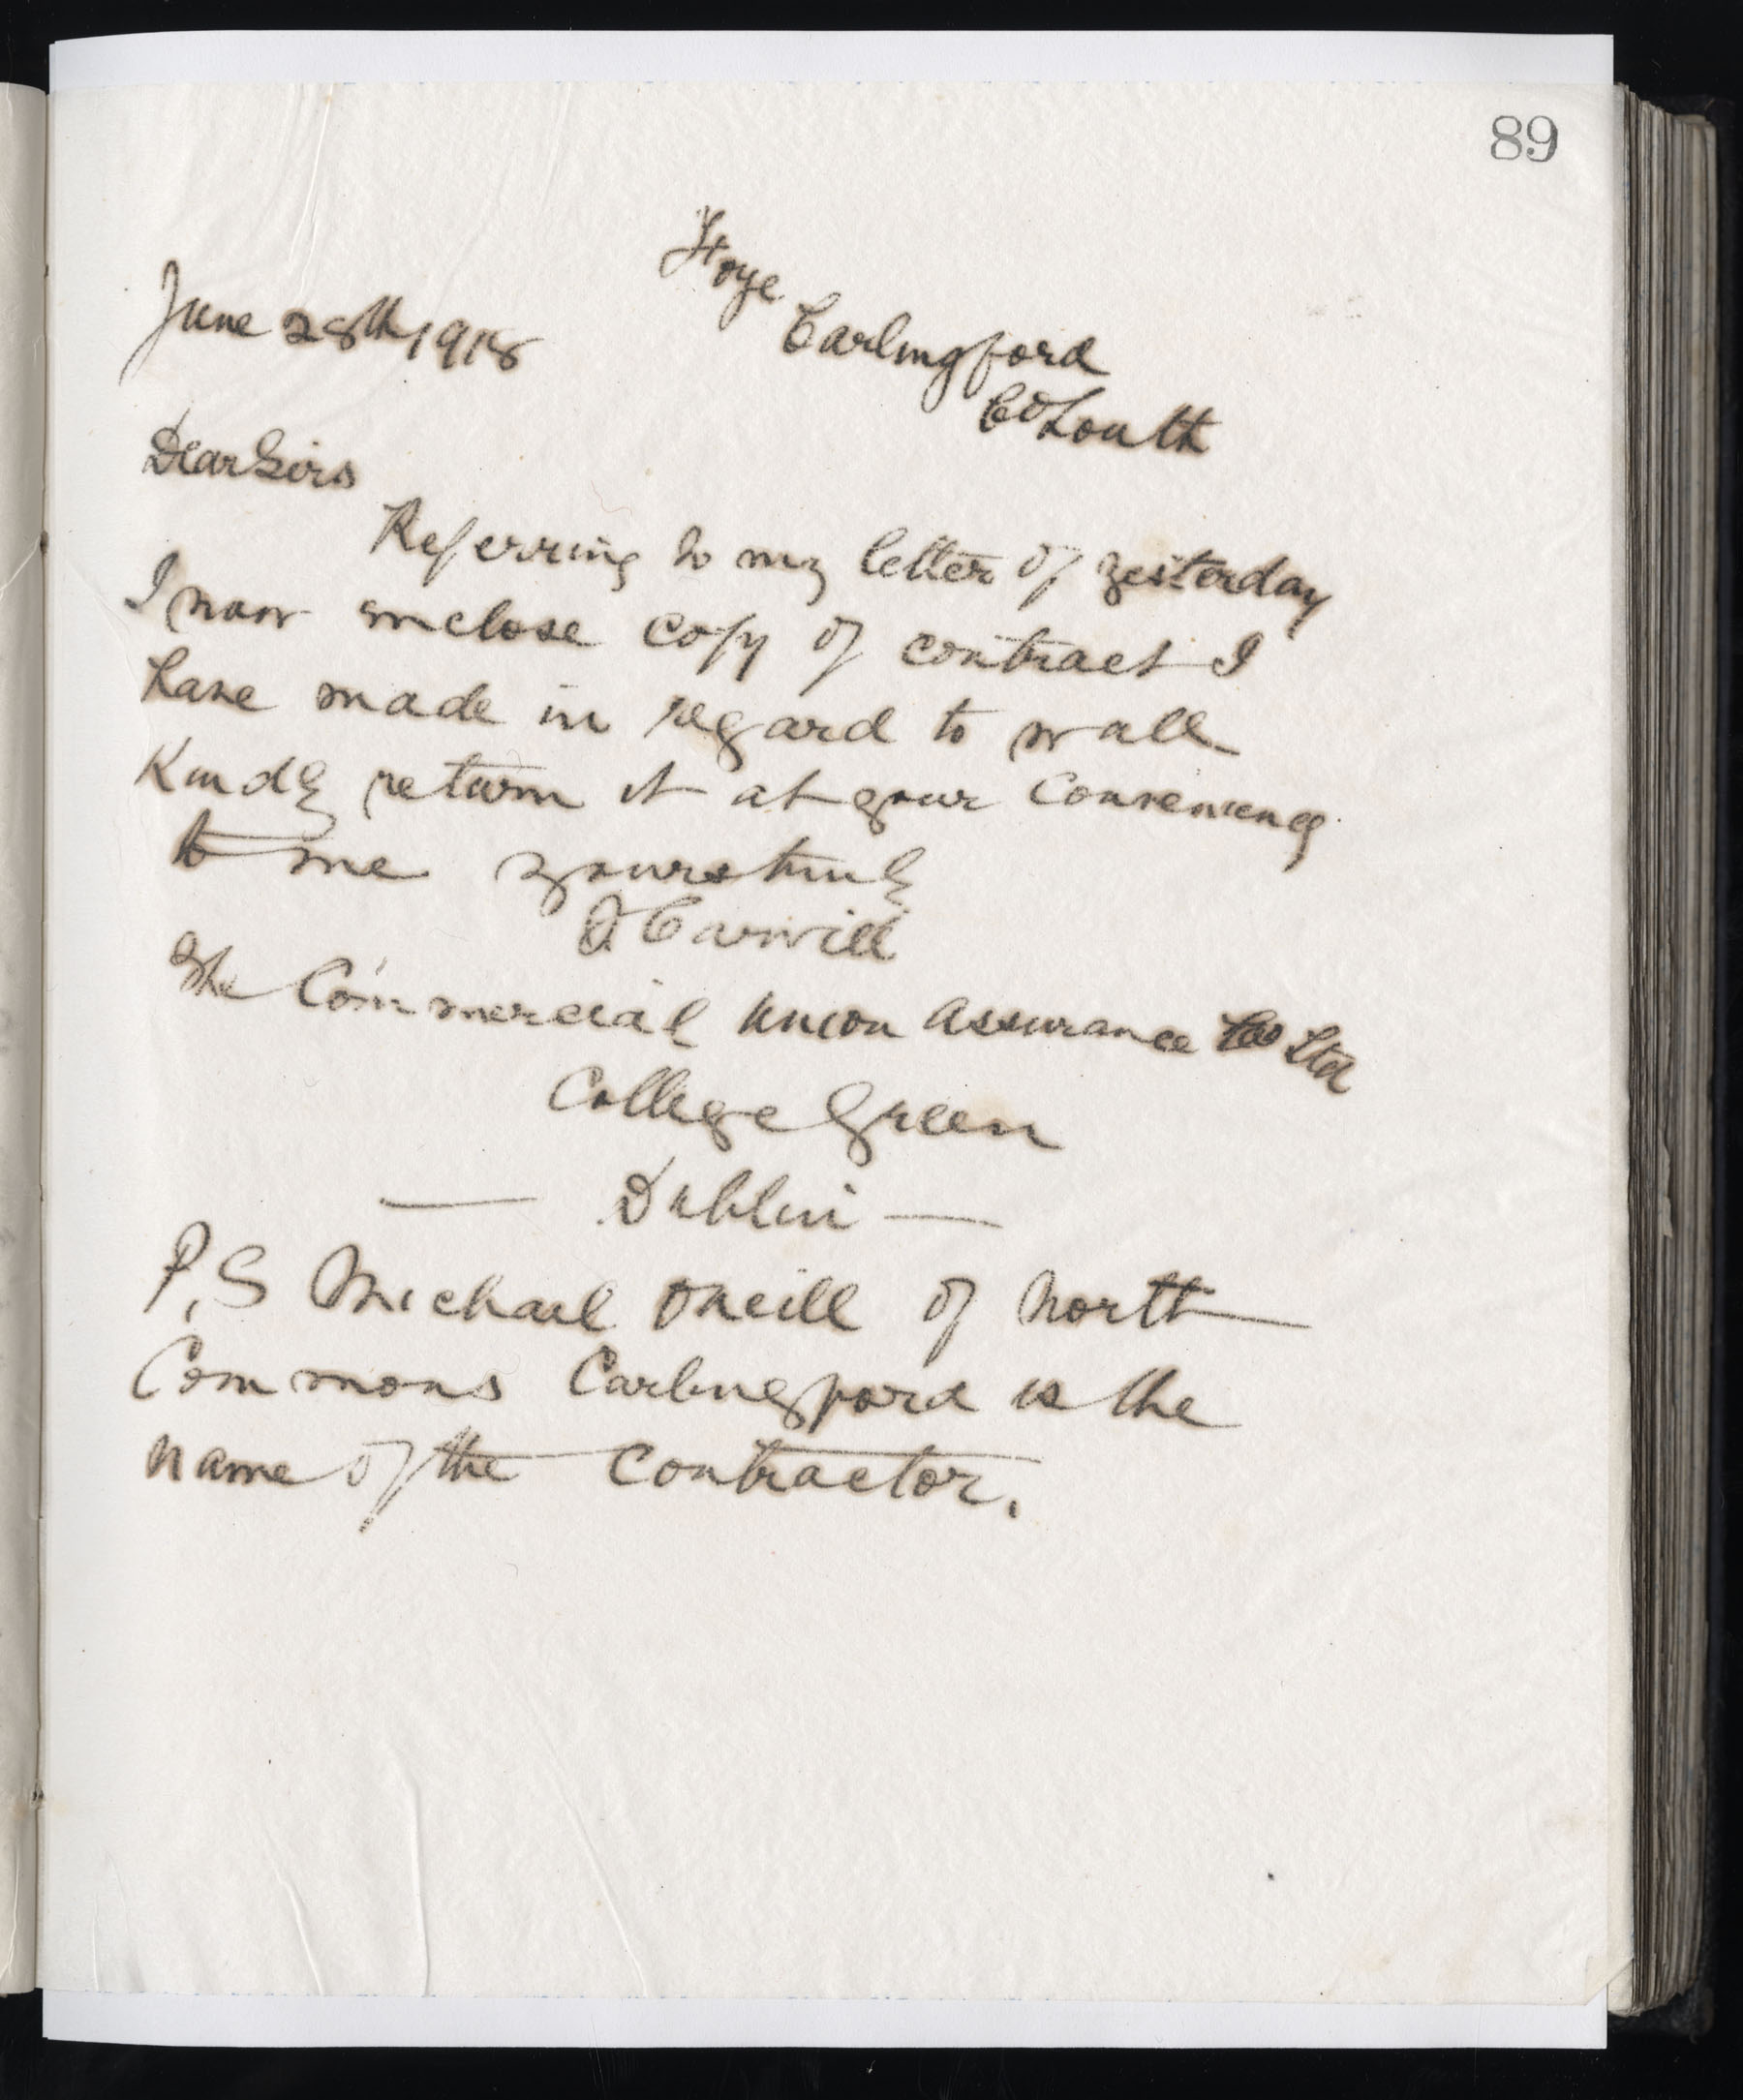 89
Foye
Carlingford
Co Louth
June 28th 1918
Dear Sirs
Referring to my letter of yesterday
I now enclose copy of contract I
have made in regard to wall
Kindly return it at your convenience
to me yours truly
Carvill
The Commercial Union Assurance Co Ltd
College Green
— Dublin —
P.S Michael ONeill of North
Commons Carlingford is the
name of the contractor.